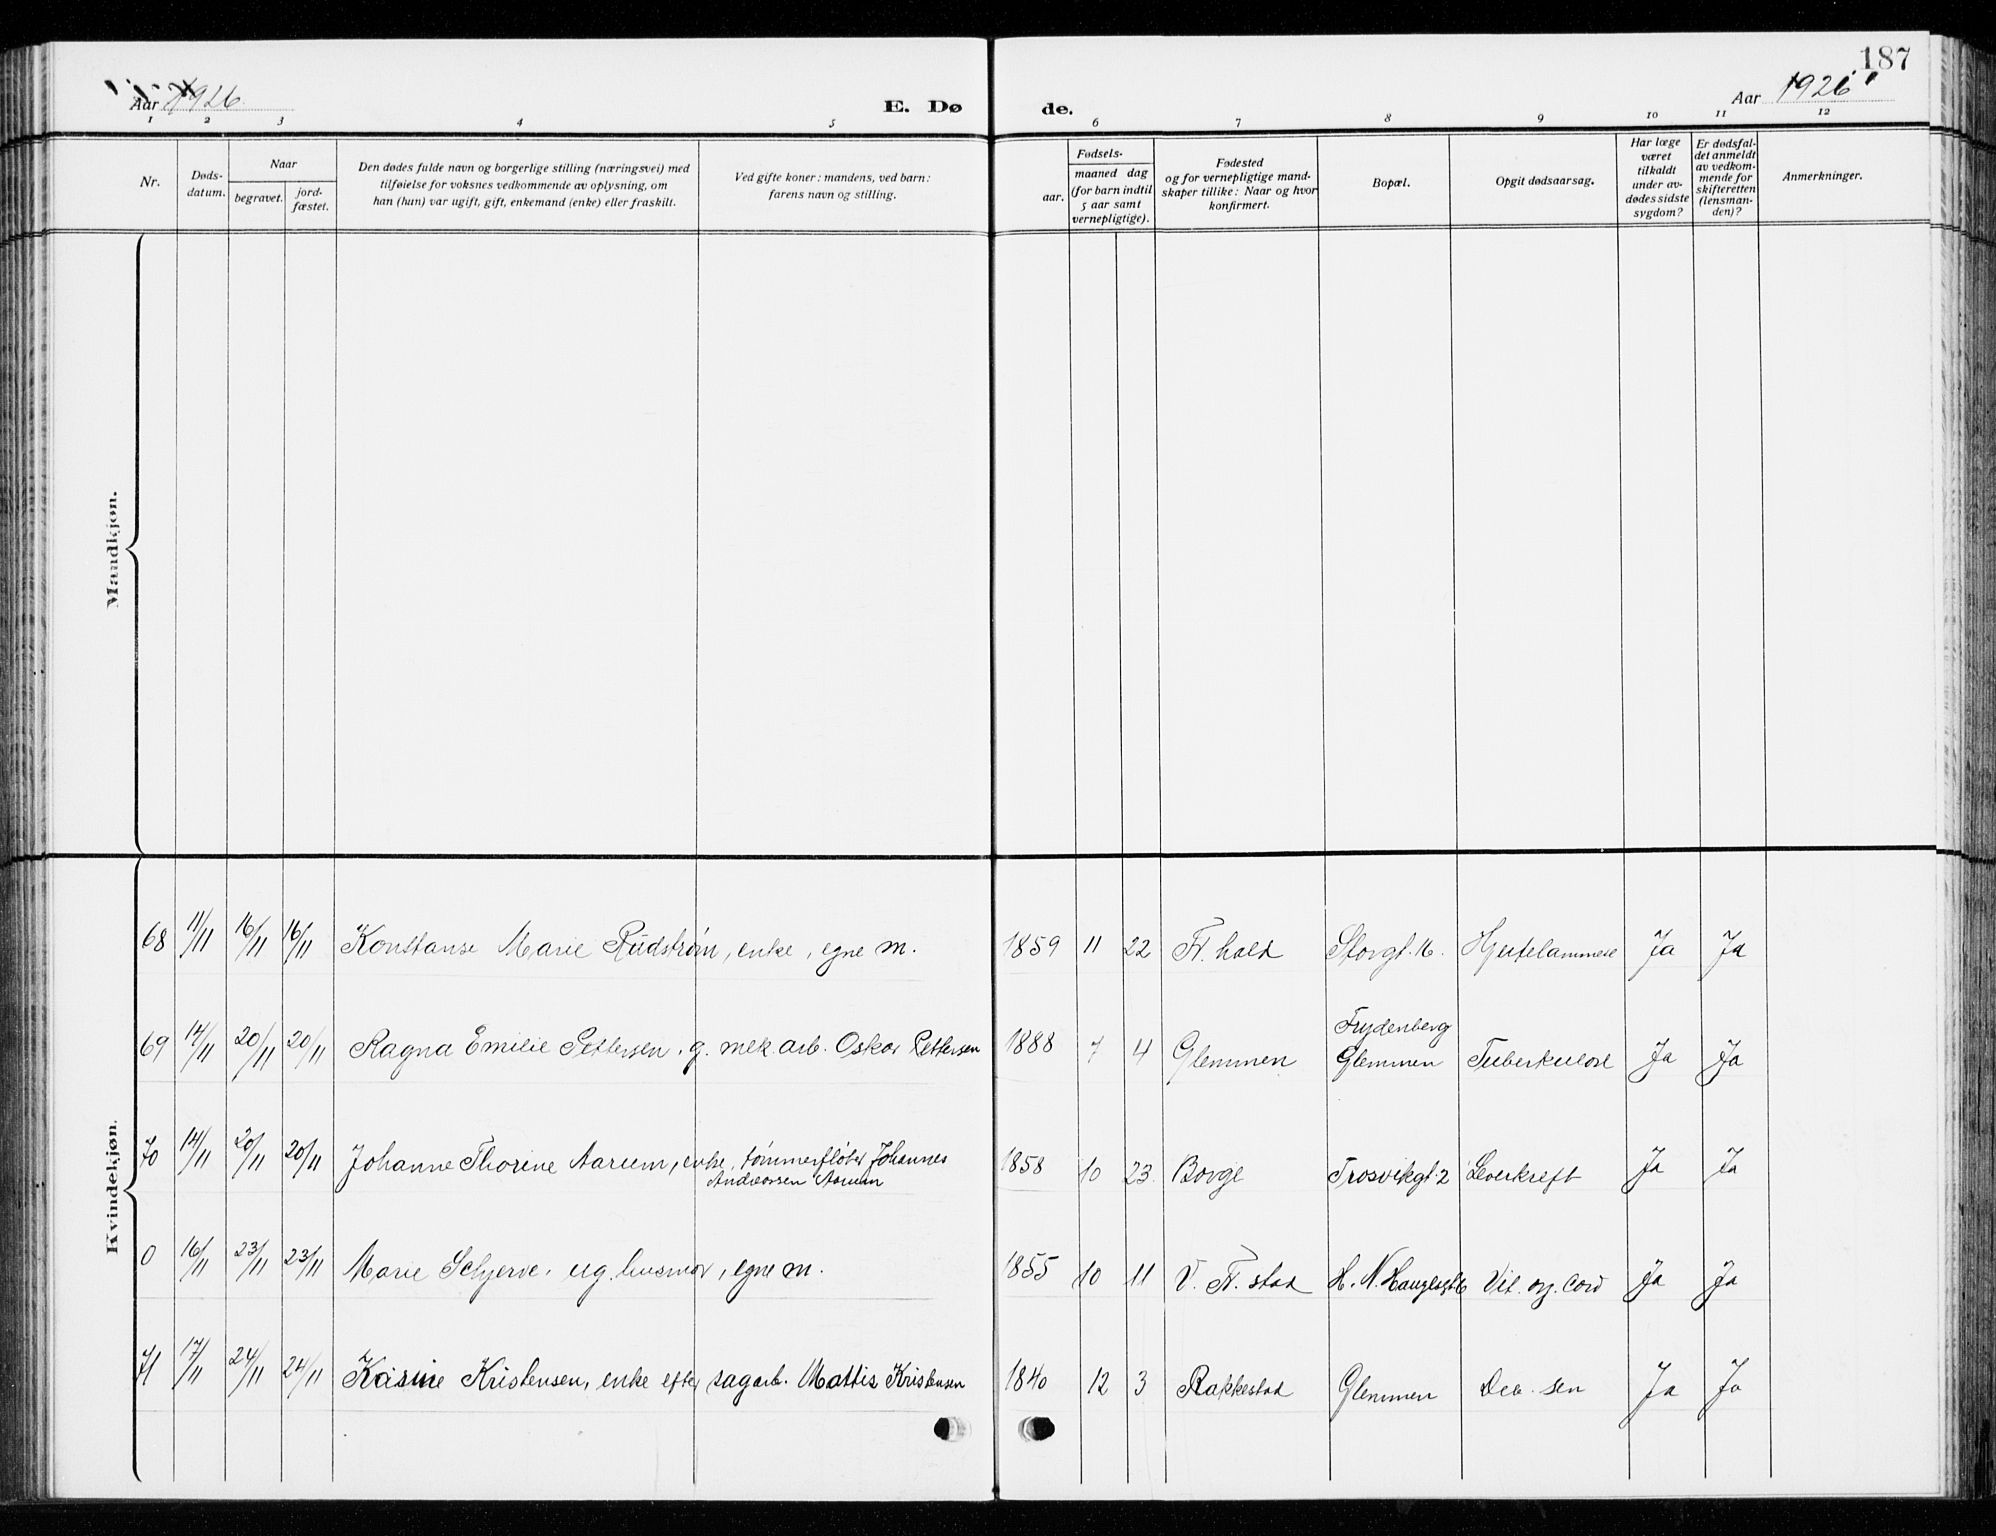 187
Aar 1926
E. Dø
de.
Aar 1926
1 2 3 4 5 6 7 8 9 10 11 12
Nr.
Døds-
datum.
Naar
begravet.
jord-
fæstet.
Den dødes fulde navn og borgerlige stilling (næringsvei) med
tilføielse for voksnes vedkommende av oplysning, om
han (hun) var ugift, gift, enkemand (enke) eller fraskilt.
Ved gifte koner: mandens, ved barn:
farens navn og stilling.
Fødsels-
aar.
maaned dag
(for barn indtil
5 aar samt
vernepligtige).
Fødested
og for vernepligtige mand-
skaper tillike: Naar og hvor
konfirmert.
Bopæl.
Opgit dødsaarsag.
Har læge
været
tilkaldt
under av-
dødes sidste
sygdom?
Er dødsfal-
det anmeldt
av vedkom-
mende for
skifteretten
(lensman-
den)?
Anmerkninger.
Mandkjøn.
Kvindekjøn.
68 11/11 16/11 16/11 Konstanse Marie Rudstrøm, enke, egne m. 1859 11 22 Fr. hald Storgt. 16. Hjertelammelse Ja Ja
Frydenberg
69 14/11 20/11 20/11 Ragna Emilie Pettersen, g. mek. arb. Oskar Pettersen 1888 7 4 Glemmen Glemmen Tuberkulose Ja Ja
70 14/11 20/11 20/11 Johanne Thorine Aarum, enke, tømmerfløter Johannes 1858 10 23. Borge Trosvikgt 2 Leverkreft Ja Ja
Andreassen Aarum
0 16/11 23/11 23/11 Marie Schjerve, ug. husmor, egne m. 1855 10 11 V. Fr. stad H. N. Haugesgt 6 Vit. org. cord Ja Ja
71 17/11 24/11 24/11 Kasine Kristensen, enke efter sagarb. Mattis Kristensen 1840 12 3 Rakkestad Glemmen Deb. sen Ja Ja